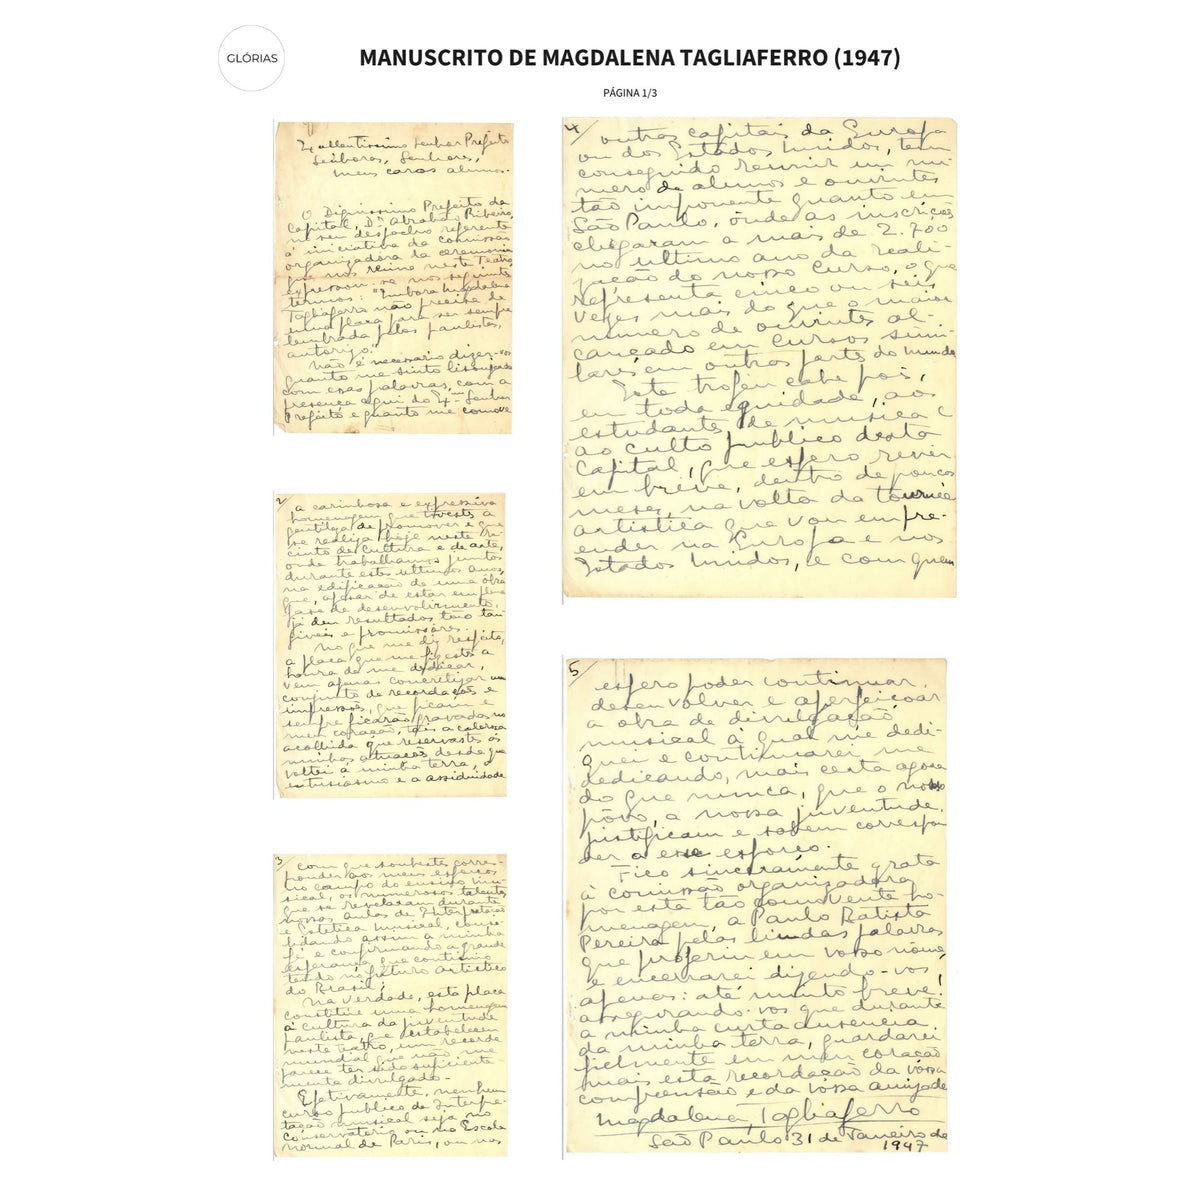 GLÓRIAS
MANUSCRITO DE MAGDALENA TAGLIAFERRO (1947)
PÁGINA 1/3
Senhor Prefeito
Senhoras, Senhores,
meus caros alunos.
O Dignissimo Prefeito da
Capital, Dr. Abrahão Ribeiro,
no seu despacho referente
à iniciativa da comissão
organizadora da ceremonia
que nos reune neste Teatro,
expressou-se nos seguintes
termos: "Embora Magdalena
Tagliaferro não precise de
uma placa para ser sempre
lembrada pelos paulistas,
autorizo."
Não é necessario dizer-vos
quanto me sinto lisongeada
com essas palavras, com a
presença aqui do Senhor
Prefeito e quanto me comove
2
a carinhosa e expressiva
homenagem que tivestes a
gentileza de promover e que
se realiza hoje neste re-
cinto de cultura e de arte,
onde trabalhamos juntos
durante estes ultimos anos,
na edificação de uma obra
que, apesar de estar em plena
fase de desenvolvimento,
já deu resultados tão tan-
giveis e promissores.
No que me diz respeito,
a placa que me fizestes a
honra de me dedicar,
vem apenas concretizar um
conjunto de recordações e
impressões, que ficam e
sempre ficarão gravadas no
meu coração, tais a calorosa
acolhida que reservastes às
minhas atuações desde que
voltei à minha terra, o
entusiasmo e a assiduidade
3
com que soubestes corres-
ponder aos meus esforços
no campo do ensino mu-
sical, os numerosos talentos
que se revelaram durante
nossas aulas de Interpretação
e Estética Musical, conso-
lidando assim a minha
fé e confirmando a grande
esperança que continuo
tendo no futuro artistico
do Brasil;
Na verdade, esta placa
constitue uma homenagem
à cultura da juventude
paulista, que estabeleceu
neste teatro, um recorde
mundial que não me
parece ter sido suficiente-
mente divulgado.
Efetivamente, nenhum
curso publico de Interpre-
tação musical seja no
Conservatorio ou na Escola
Normal de Paris, ou nos
4
outras capitais da Europa
ou dos Estados Unidos, tem
conseguido reunir um nu-
mero de alunos e ouvintes
tão imponente quanto em
São Paulo, onde as inscrições
chegaram a mais de 2.700
no ultimo ano da reali-
zação do nosso curso, o que
representa cinco ou seis
vezes mais do que o maior
numero de ouvintes al-
cançado em cursos simi-
lares em outras partes do mundo
Este troféu cabe pois,
em toda equidade, aos
estudantes de musica e
ao culto publico desta
Capital, que espero rever
em breve, dentro de poucos
meses, na volta da tournée
artistica que vou empre-
ender na Europa e nos
Estados Unidos, e com quem
5
espero poder continuar
desenvolver e aperfeiçoar
a obra de divulgação
musical à qual me dedi-
quei e continuarei me
dedicando, mais certa agora
do que nunca, que o nosso
povo, a nossa juventude,
justificam e sabem correspon
der a esse esforço.
Fico sinceramente grata
à comissão organizadora
por esta tão comovente ho-
menagem, a Paulo Batista
Pereira pelas lindas palavras
que proferiu em vosso nome,
e encerrarei dizendo-vos
apenas: até muito breve!
assegurando-vos que durante
a minha curta ausencia
da minha terra, guardarei
fielmente em meu coração
mais esta recordação da vossa
compreensão e da vossa amizade
Magdalena Tagliaferro
São Paulo 31 de Janeiro de
1947